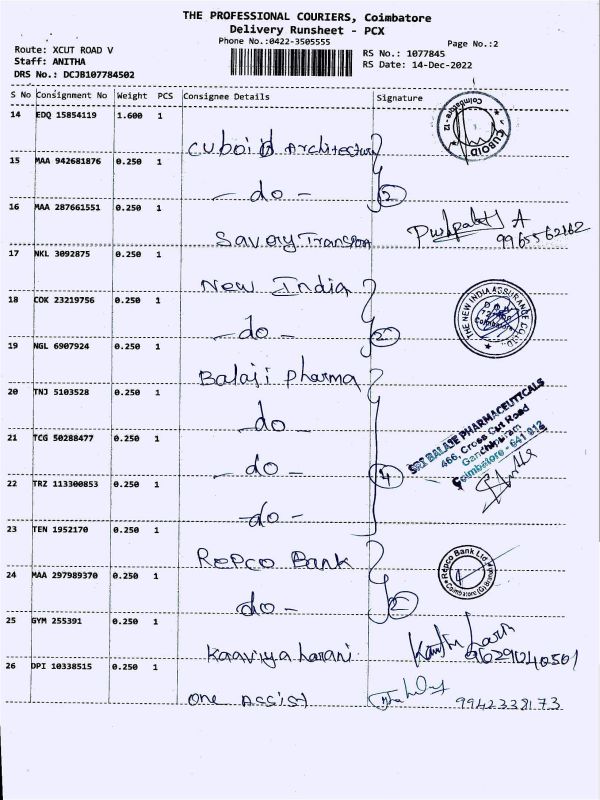 THE PROFESSIONAL COURIERS, Coimbatore
Delivery Runsheet - PCX
Phone No.:0422-3505555
Page No.:2
Route: XCUT ROAD V
RS No.: 1077845
Staff: ANITHA
RS Date: 14-Dec-2022
DRS No.: DCJB107784502
S No Consignment No Weight PCS Consignee Details Signature
14 EDQ 15854119 1.600 1
Cuboid Architecture
CUBOID Coimbatore - 12
15 MAA 942681876 0.250 1
- do - 2
16 MAA 287661551 0.250 1
Savory Transport
A
9965562162
17 NKL 3092875 0.250 1
New India
18 COK 23219756 0.250 1
- do - 2
THE NEW INDIA ASSURANCE CO. LTD.
Coimbatore
19 NGL 6907924 0.250 1
Balaji Pharma
20 TNJ 5103528 0.250 1
- do
21 TCG 50288477 0.250 1
- do - 4
SRI BALAJE PHARMACEUTICALS
466, Cross Cut Road
Gandhipuram
Coimbatore - 641 012
22 TRZ 113300853 0.250 1
- do -
23 TEN 1952170 0.250 1
Repco Bank
Repco Bank Ltd.
24 MAA 297989370 0.250 1
- do - 2
25 GYM 255391 0.250 1
Kaaviya harani
9629040501
26 DPI 10338515 0.250 1
One Assist
9942338173